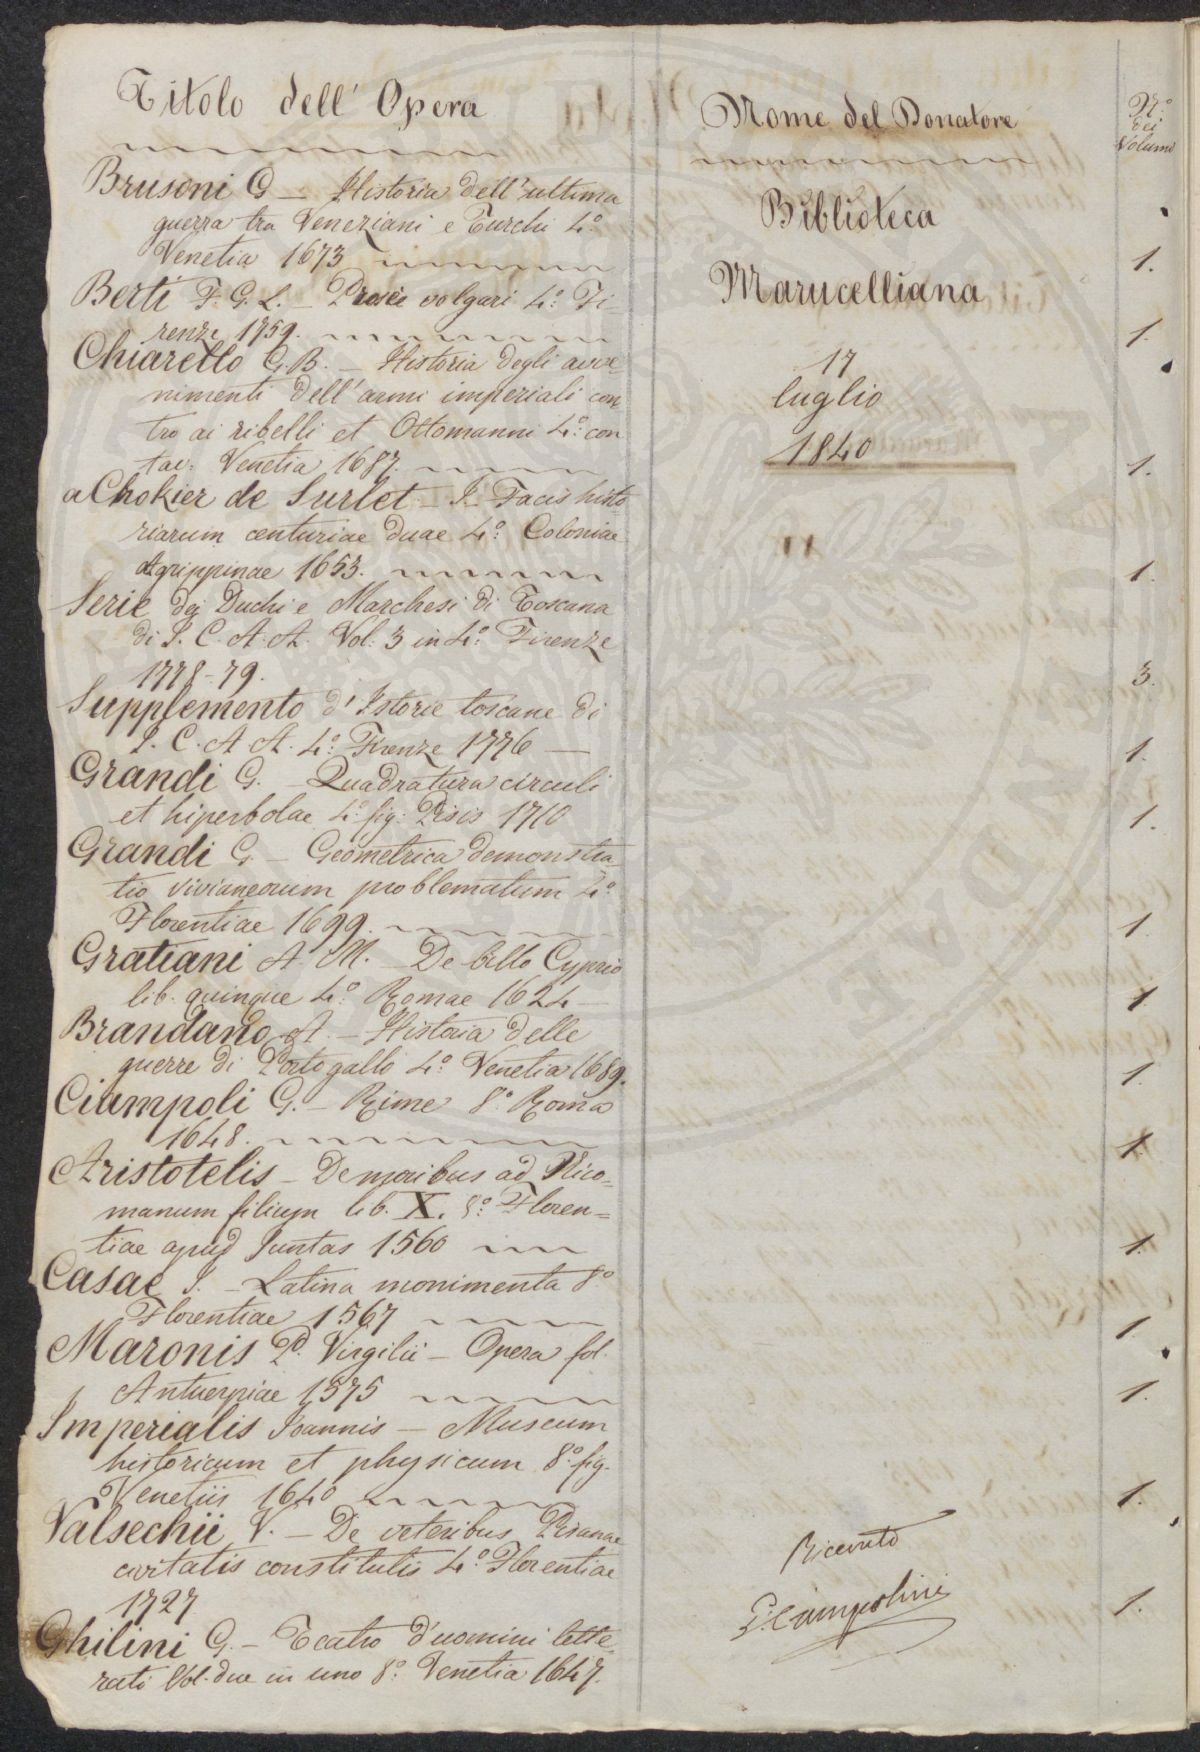 Titolo dell' Opera
Brusoni G — Historia dell'ultima
guerra tra Veneziani e Turchi 4.o
Venetia 1673
Berti F. G. L. — Prose volgari 4.o Fi-
renze 1759.
Chiarello G. B. — Historia degli avve-
nimenti dell'armi imperiali con
tro ai ribelli et Ottomanni 4.o con
tav: Venetia 1687.
a Chokier de Surlet — J. Facis histo
riarum centuriae duae 4.o Coloniae
Agrippinae 1653.
Serie dei Duchi e Marchesi di Toscana
di I. C. A. A. Vol: 3 in 4.o Firenze
1778-79.
Supplemento d'Istorie toscane di
I. C. A A. 4.o Firenze 1776 —
Grandi G. — Quadratura circuli
et hiperbolae 4.o fig: Pisis 1710
Grandi G. — Geometrica demonstra-
tio vivianeorum problematum 4.o
Florentiae 1699.
Gratiani A. M. — De bello Cyprio
lib. quinque 4.o Romae 1624 —
Brandano A. — Historia delle
guerre di Portogallo 4.o Venetia 1689.
Ciampoli G. — Rime 8.o Roma
1648.
Aristotelis — De moribus ad Nico-
manum filium lib. X. 8.o Floren=
tiae apud Juntas 1560
Casae J. — Latina monimenta 8.o
Florentiae 1567
Maronis P. Virgilii — Opera fol.
Antuerpiae 1575
Imperialis Joannis — Museum
historicum et physicum 8.o fig.
Venetiis 1640
Valsechii V. — De veteribus Pisanae
civitatis constitutis 4.o Florentiae
1727
Ghilini G. — Teatro d'uomini lette-
rati Vol. due in uno 8.o Venetia 1647.
Nome del Donatore
Biblioteca
Marucelliana
17
luglio
1840
Ricevuto
Ciampolini
N.o
dei
Volumi
1.
1.
1.
1.
3.
1.
1.
1.
1.
1.
1.
1.
1.
1.
1.
1.